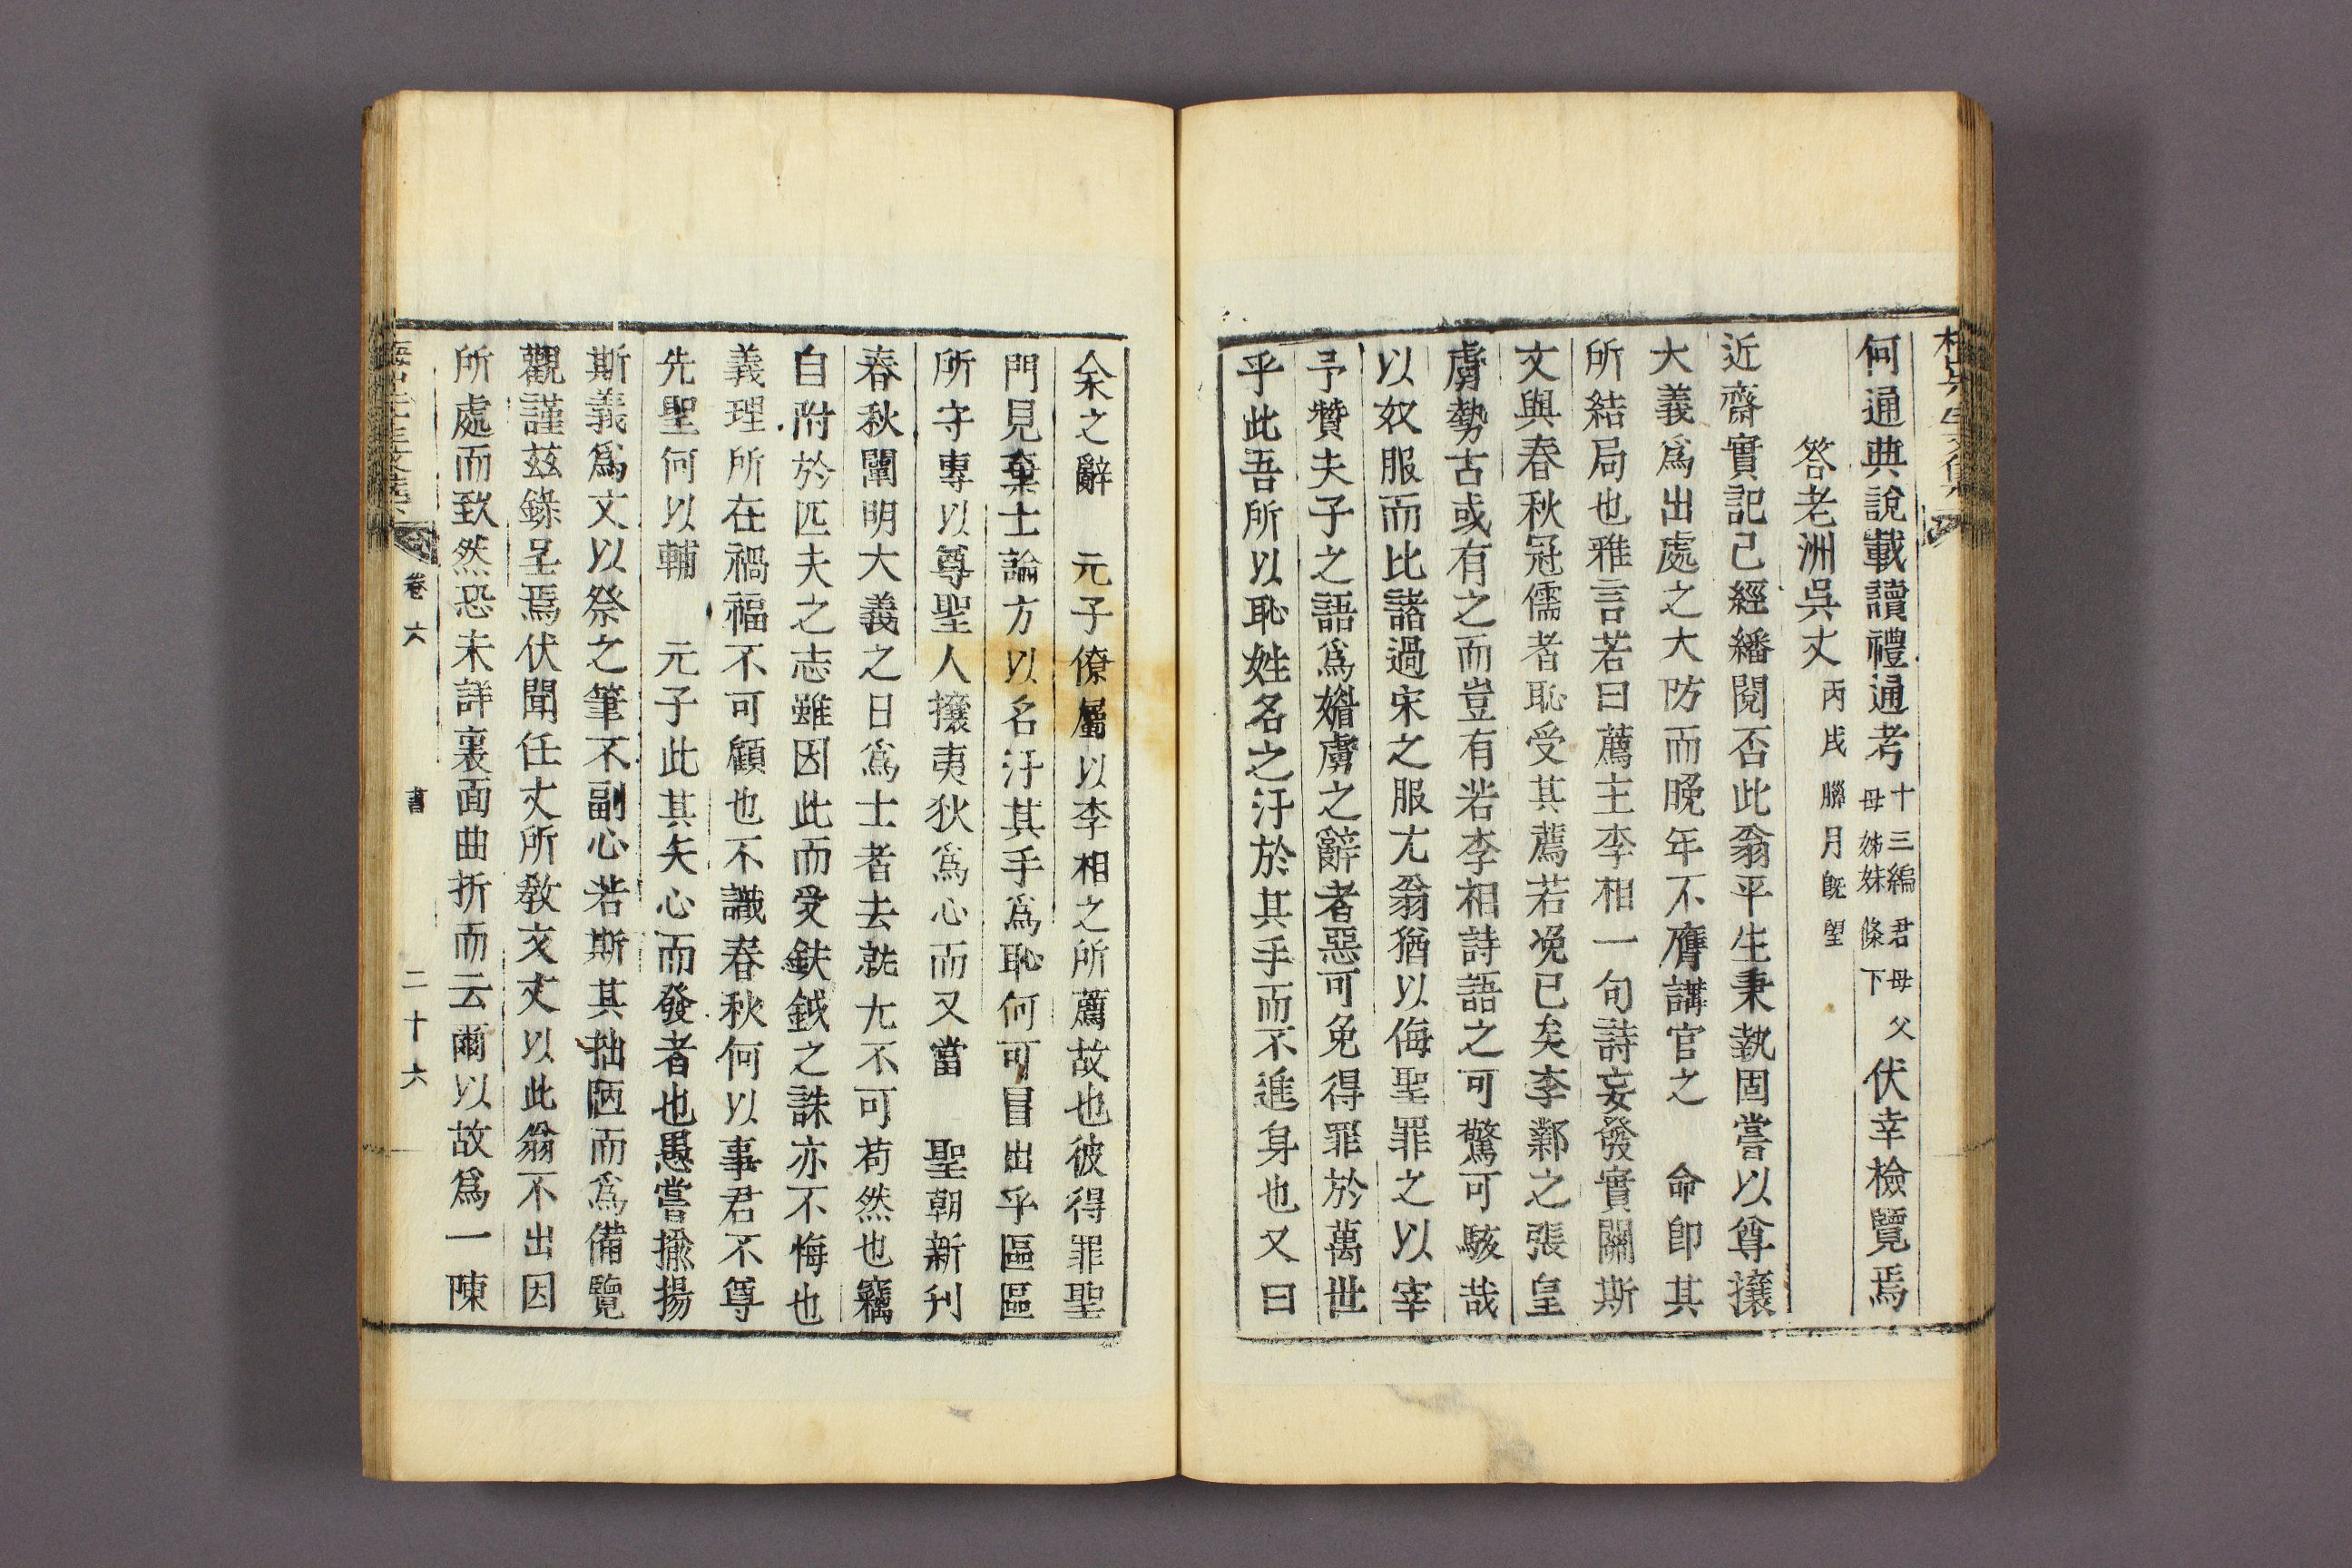 何通典說載讀禮通考十三編君母父母姊妹條下伏幸檢覽焉
答老洲吳丈丙戌臘月旣望
近齋實記已經繙閱否此翁平生秉執固嘗以尊攘
大義爲出處之大防而晚年不膺講官之　命卽其
所結局也雅言若曰薦主李相一句詩妄發實關斯
文與春秋冠儒者恥受其薦若凂已矣李鄴之張皇
虜勢古或有之而豈有若李相詩語之可驚可駭哉
以奴服而比諸過宋之服尤翁猶以侮聖罪之以宰
予贊夫子之語爲媚虜之辭者惡可免得罪於萬世
乎此吾所以恥姓名之汙於其手而不進身也又曰
余之辭　元子僚屬以李相之所薦故也彼得罪聖
門見棄士論方以名汙其手爲恥何可冒出乎區區
所守專以尊聖人攘夷狄爲心而又當　聖朝新刊
春秋闡明大義之日爲士者去就尤不可苟然也竊
自附於匹夫之志雖因此而受鈇鉞之誅亦不悔也
義理所在禍福不可顧也不識春秋何以事君不尊
先聖何以輔　元子此其矢心而發者也愚嘗揄揚
斯義爲文以祭之筆不副心若斯其拙陋而爲備覽
觀謹玆錄呈焉伏聞任丈所敎文丈以此翁不出因
所處而致然恐未詳裏面曲折而云爾以故爲一陳
卷六　書　二十六